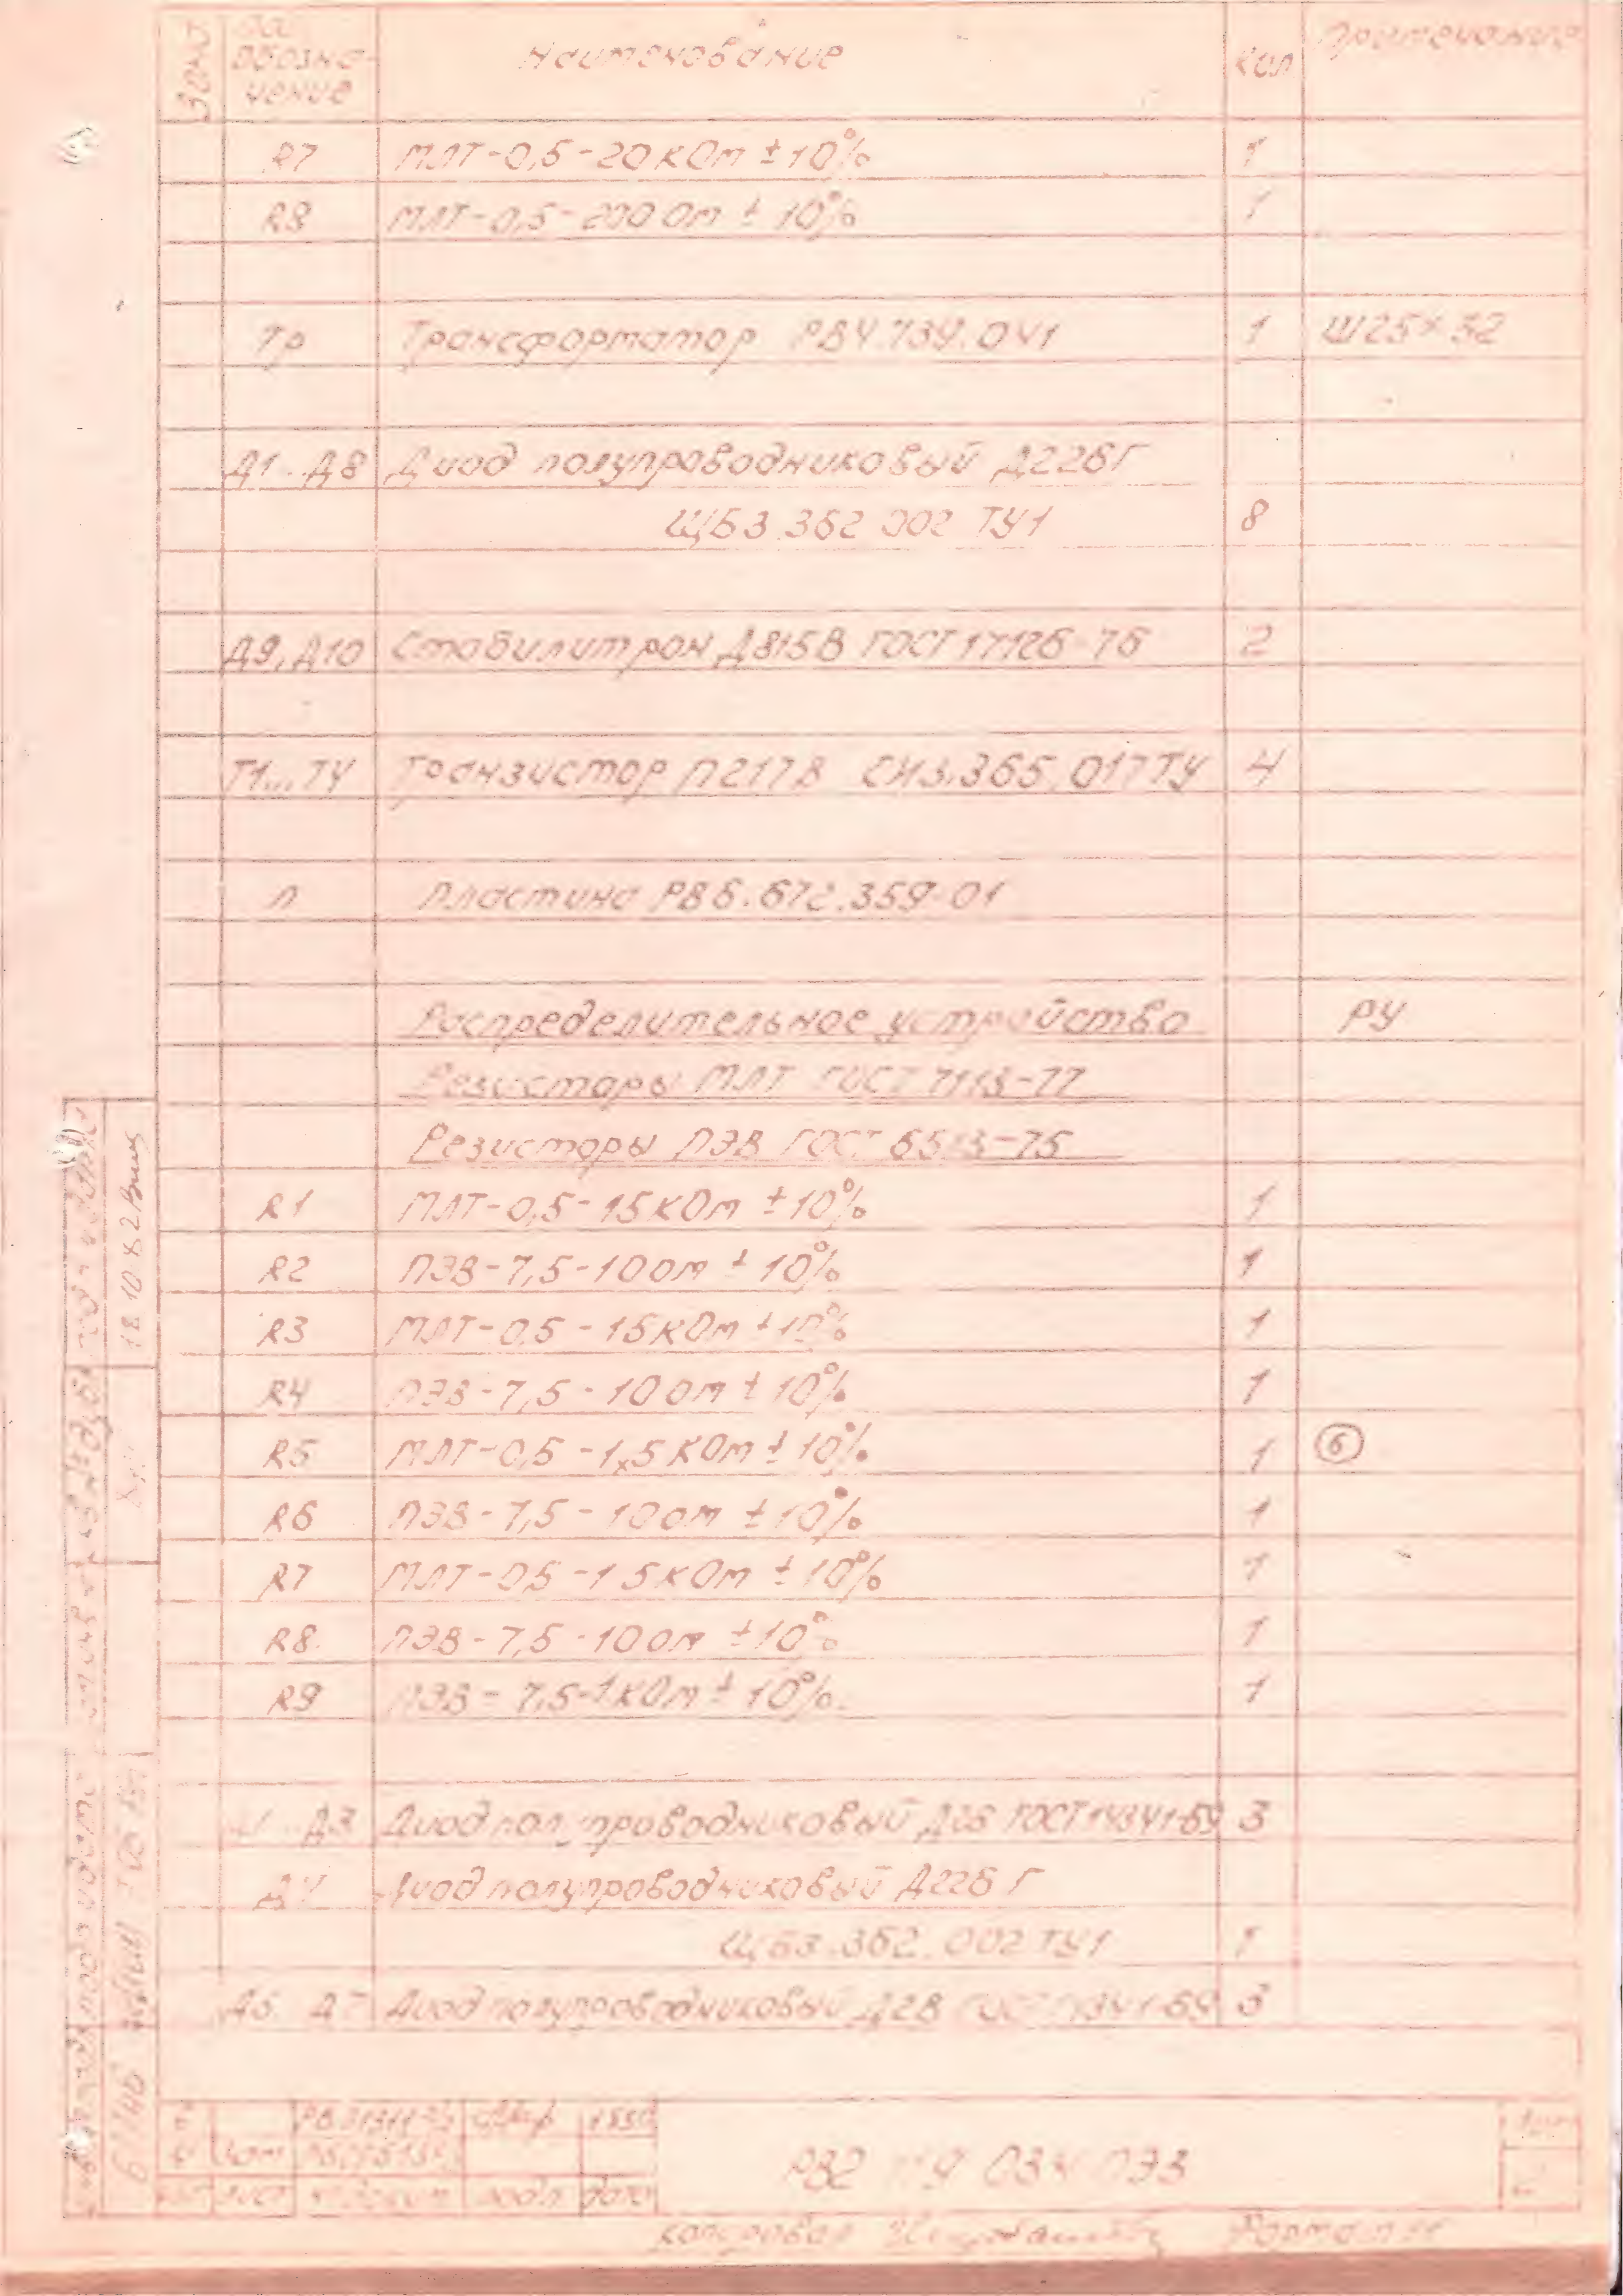 Зона
Поз. обозна-
чение
Наименование
Кол
Примечание
R7 МЛТ-0,5-20кОм ±10% 1
R8 МЛТ-0,5-200 Ом ± 10% 1
Тр Трансформатор РВ4.739.041 1 Ш25×32
Д1...Д8 Диод полупроводниковый Д226Г
ЩБ3.362.002 ТУ1 8
Д9, Д10 Стабилитрон Д815В ГОСТ 17126-76 2
Т1...Т4 Транзистор П217В СИ3.365.017ТУ 4
П Пластина РВ6.672.359-01
Распределительное устройство РУ
Резисторы МЛТ ГОСТ 7113-77
Резисторы ПЭВ ГОСТ 6513-75
R1 МЛТ-0,5-15кОм ±10% 1
R2 ПЭВ-7,5-10 Ом ± 10% 1
R3 МЛТ-0,5-15кОм ±10% 1
R4 ПЭВ-7,5-10 Ом ± 10% 1
R5 МЛТ-0,5-1,5 КОм ± 10% 1 6
R6 ПЭВ-7,5-10 Ом ±10% 1
R7 МЛТ-0,5-1 5кОм ±10% 1
R8 ПЭВ-7,5-10 Ом ±10% 1
R9 ПЭВ-7,5-1кОм ± 10%. 1
Д3 Диод полупроводниковый ГОСТ 14341-69 3
Д4 Диод полупроводниковый Д226 Г
ЩБ3.362.002 ТУ1 1
Д5 Д7 Диод полупроводниковый 3
18.10.82
лист подп дата
РВ2 ПЭ3
Копировал Формат